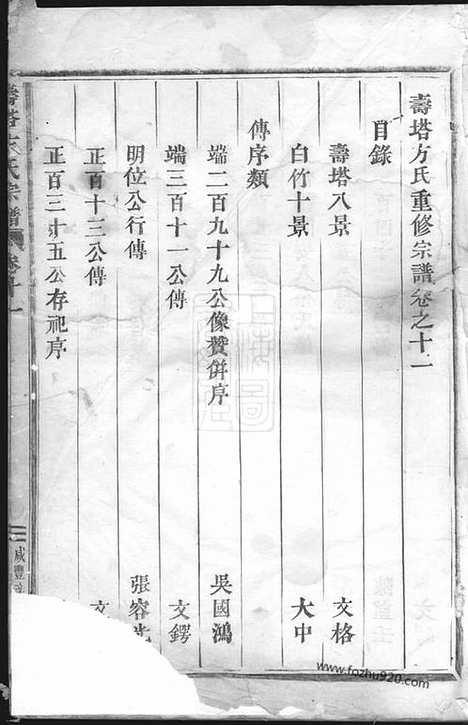 壽塔方氏重修宗譜卷之十一
目錄
壽塔八景 文格
白竹十景 大中
傳序類
端二百九十九公像贊併序 吳國鴻
端三百十一公傳 文鍔
明位公行傳 張容光
正百十三公傳 文
正百三十五公存祀序
壽塔方氏宗譜 卷十一
咸豐
www.fozhu920.com